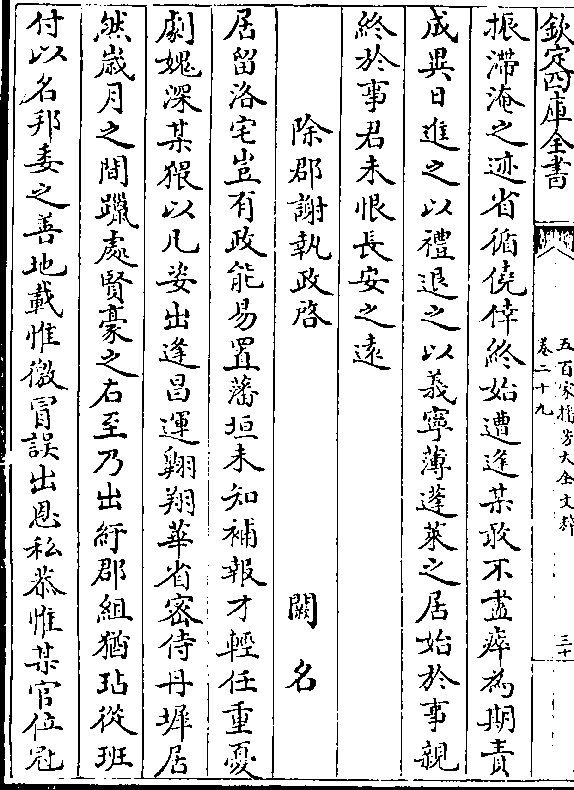 欽定四庫全書
五百家播芳大全文粹
卷二十九
三十
振滯淹之迹省循僥倖終始遭逢某敢不盡瘁為期責
成異日進之以禮退之以義寧薄蓬萊之居始於事親
終於事君未恨長安之遠
除郡謝執政啓
闕名
居留洛宅豈有政能易置藩垣未知補報才輕任重憂
劇媿深某猥以凡姿出逢昌運翱翔華省密侍丹墀居
然歲月之間躐處賢豪之右至乃出紆郡組猶玷從班
付以名邦委之善地載惟徼冒誤出恩私恭惟某官位冠